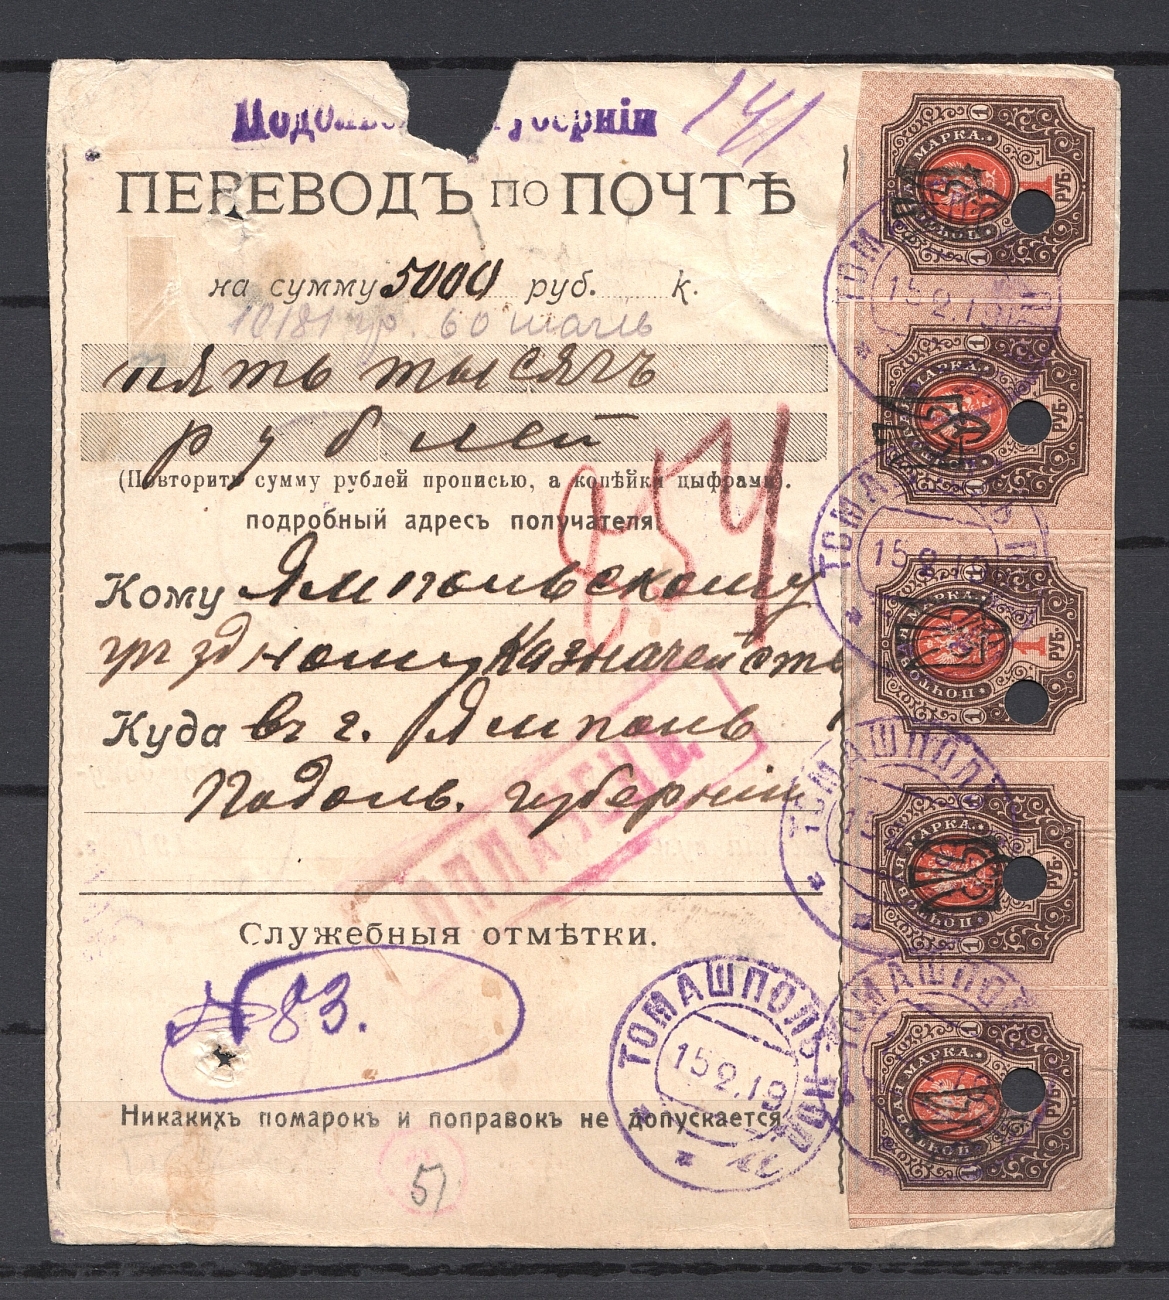 губерніи
141
ПЕРЕВОДЪ ПО ПОЧТѢ
на сумму 5000 руб. к.
10181 гр. 60 шагів
пять тысячъ
рублей
(Повторить сумму рублей прописью, а копѣйки цыфрами).
подробный адресъ получателя
854
Кому Ямпольскому
уѣздному Казначейств
Куда въ г. Ямполь
Подольс. губерніи
ОПЛАЧЕНЪ
Служебныя отмѣтки.
№ 83.
Никакихъ помарокъ и поправокъ не допускается
51
ТОМАШПОЛЬ ПОД.
15 2.19
ТОМАШПОЛЬ
15 2.19
ТОМАШПОЛЬ
15 2.19
ТОМАШПОЛЬ
15
ТОМАШПОЛЬ
ПОЧТОВАЯ МАРКА.
1 РУБ.
ПОЧТОВАЯ МАРКА.
РУБ.
ПОЧТОВАЯ МАРКА.
1 РУБ.
ПОЧТОВАЯ МАРКА.
РУБ.
ПОЧТОВАЯ МАРКА.
РУБ.